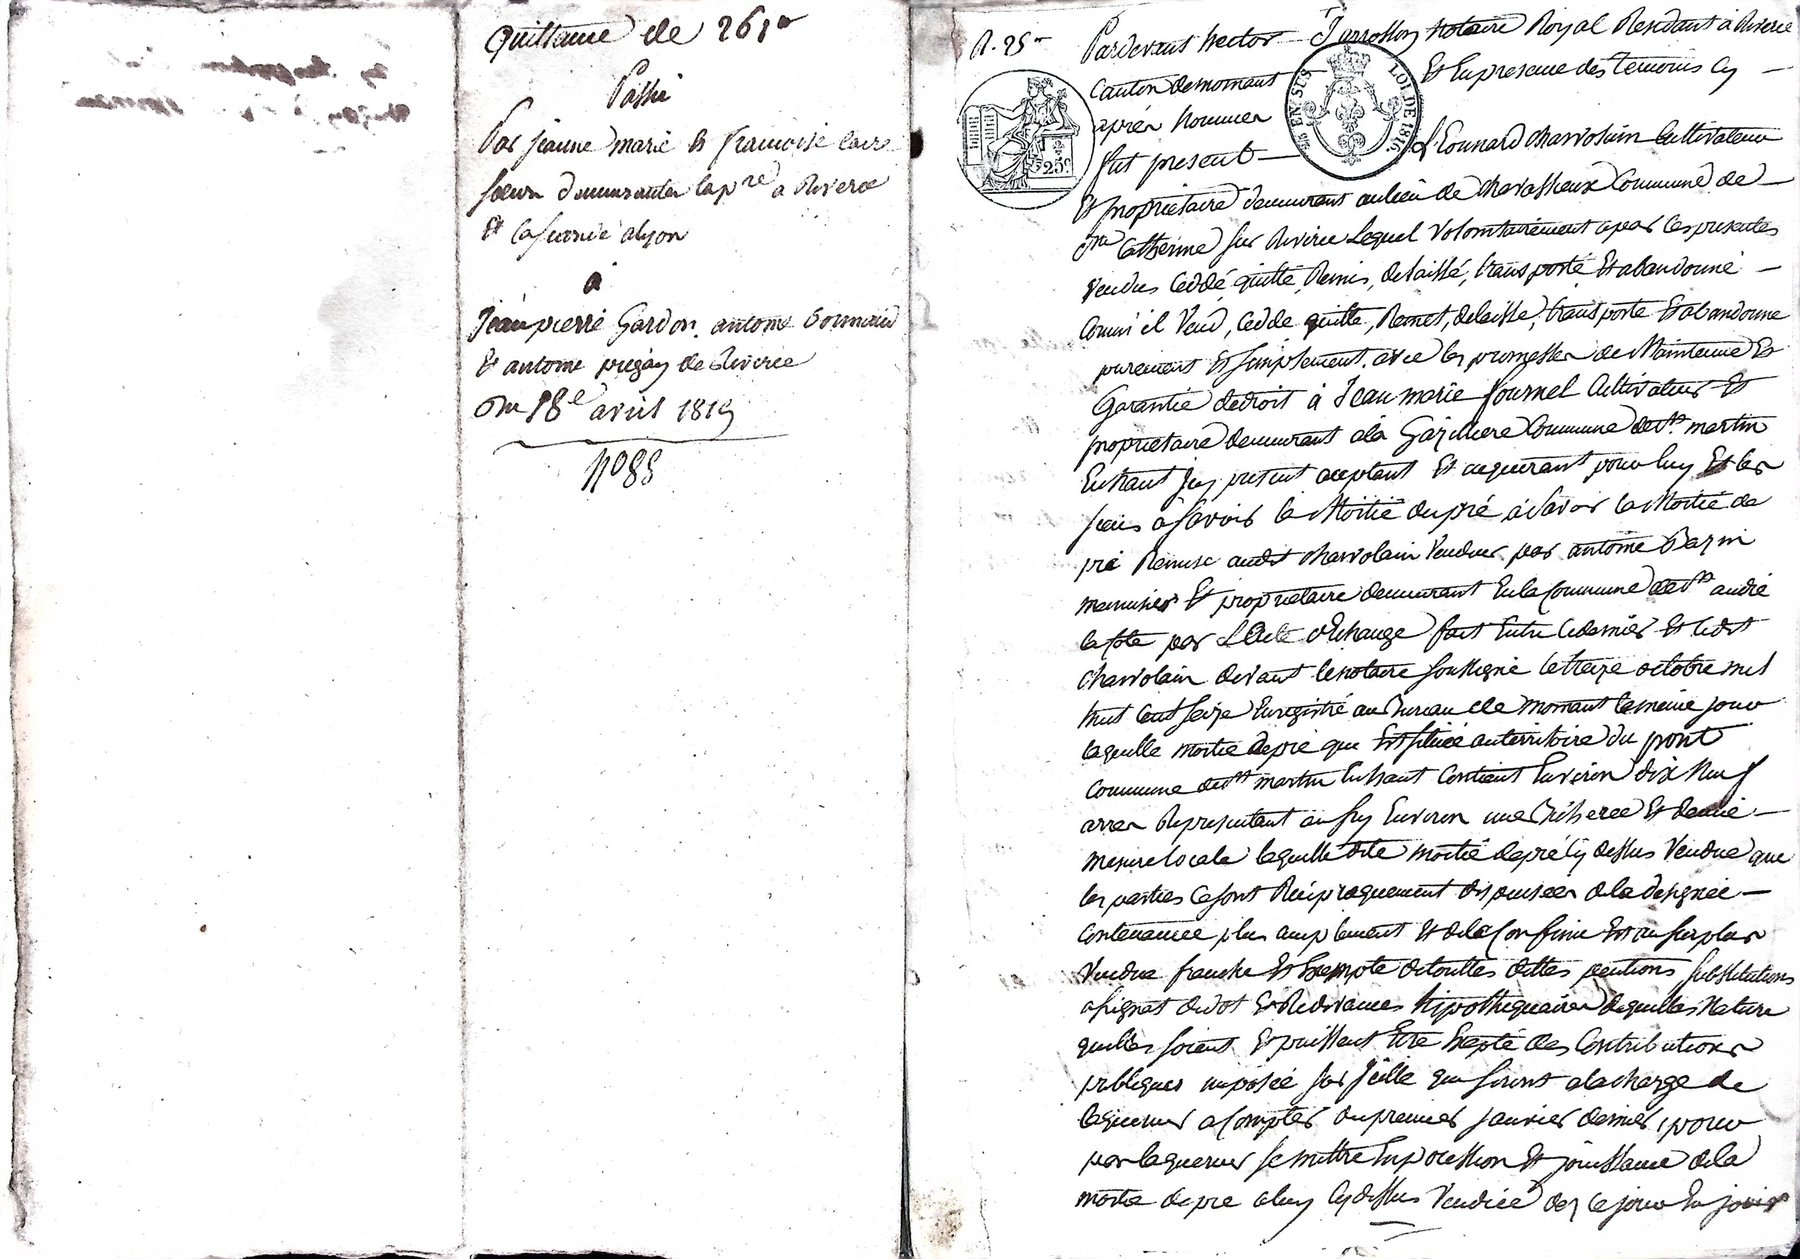 Quittance de 261 f
Passé
Par jeanne marie & francoise
soeurs demeurantes la pre a Riverie
Et la seconde a lyon
à
Jean pierre Gardon, antoine
& antoine de Riverie
Du 18e avril 1819
No 88
R. 25
Pardevant hector Jarrosson notaire Royal Residant à Riverie
Canton de mornant Et En presence des temoins cy
SUS LOI DE 1816
après nommés
fut present Léonnard Charvolain Cultivateur
25c
Et proprietaire demeurant au lieu de Chavassieux Commune de
Ste Catherine sur Riverie Lequel Volontairement a par les presentes
Vendus Ceddé, quitté, Remis, delaissé, transporté Et abandonné
Comm'il Vend, Cedde, quitte, Remet, delaisse, transporte Et abandonne
purement Et simplement, avec les promesses de Maintenue Et
Garantie de droit à Jean marie fournel Cultivateur Et
proprietaire demeurant à la Gazilliere Commune de St martin
Enhaut Icy present acceptant Et acquerant pour luy Et les
siens à savoir la Moitié du pré, à savoir la Moitié de
pré Remise audit Charvolain Vendeur par antoine Bazin
menusier Et proprietaire demeurant En la Commune de St andré
la Cote par L'Acte d'Echange fait Entre Ce dernier Et ledit
Charvolain devant le notaire soussigné le treize octobre mil
huit Cent seize Enregistré au Bureau de Mornant le même jour
laquelle moitié de pré que Est située au territoire du pont
Commune de St martin Enhaut Contient Environ dix Neuf
arres Representant ansy Environ une Bicherée Et demie
mesure locale laquelle dite moitié de pré Cy dessus Vendue que
les parties Ce sont Reciproquement dispensées de la designée
Contenance plus amplement Et de la Confinie Est au surplus
Vendue franche Et Exempte de touttes dettes pentions substitutions
asignat de dot Et Redevances hipothequaires de quelles Nature
quelles soient Et puissent Etre Excepté des Contributions
publiques imposée sur Icelle qui seront a la charge de
laquereur a Compter du premier janvier dernier, pour
par laquereur se mettre En pocession Et jouissance de la
moitié de pré a luy Cy dessus Vendüe des Ce jour En jouir